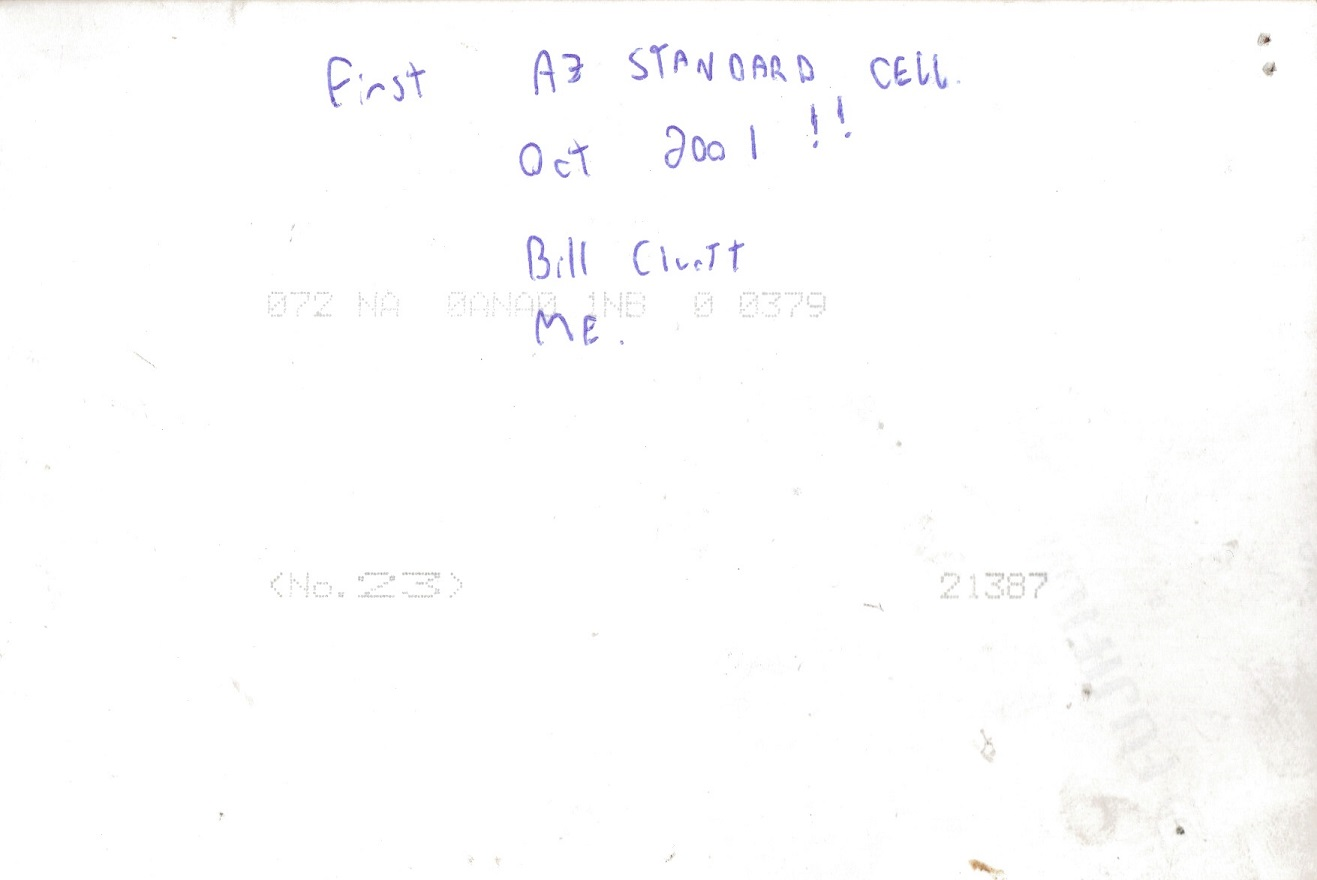 First AZ STANDARD CELL.
Oct 2001 !!
Bill Clutt
072 NA 0ANA0 1NB 0 0379
ME.
<No.23> 21387